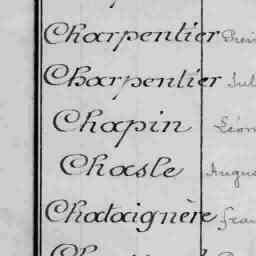 Charpentier
Charpentier Jul
Chapin Léon
Chasle Augus
Chataignère fran